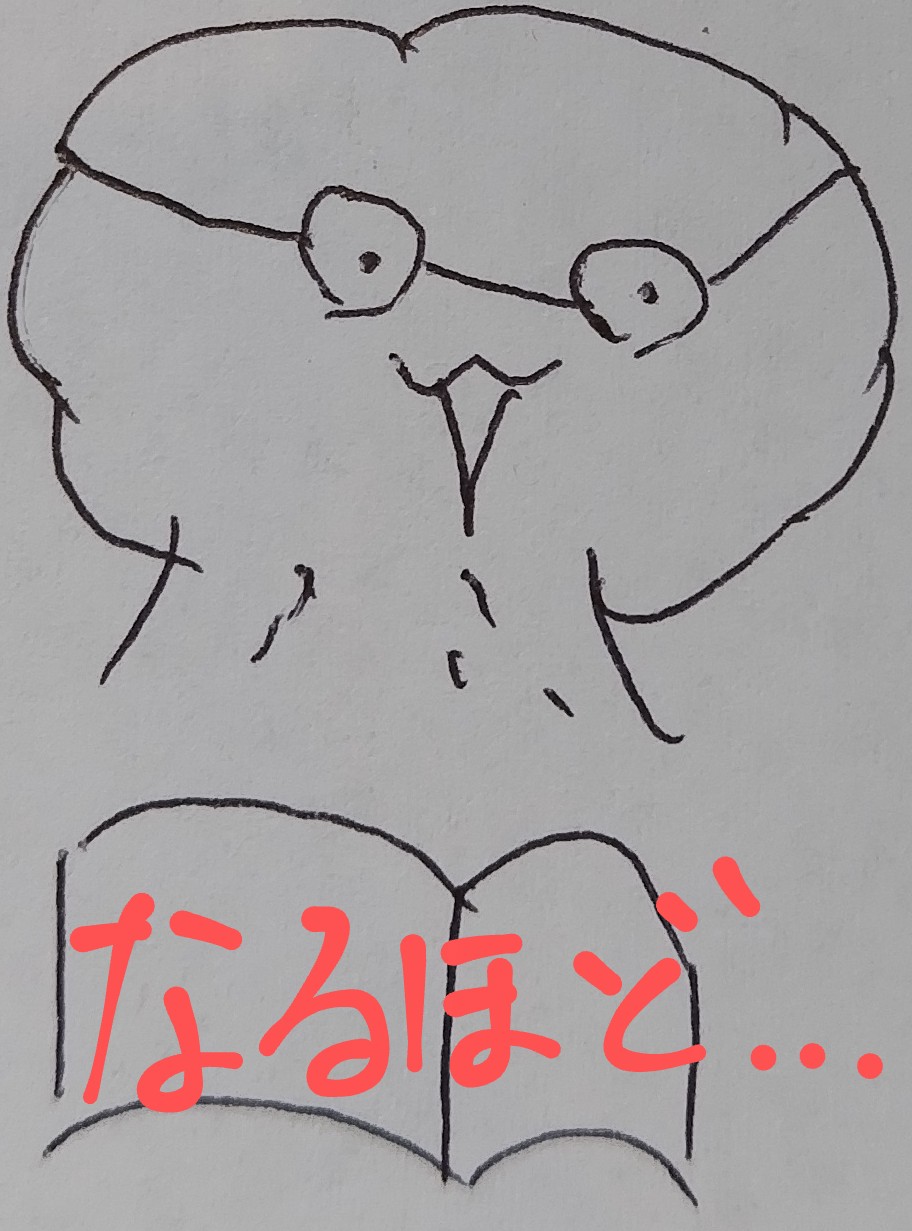 なるほど...